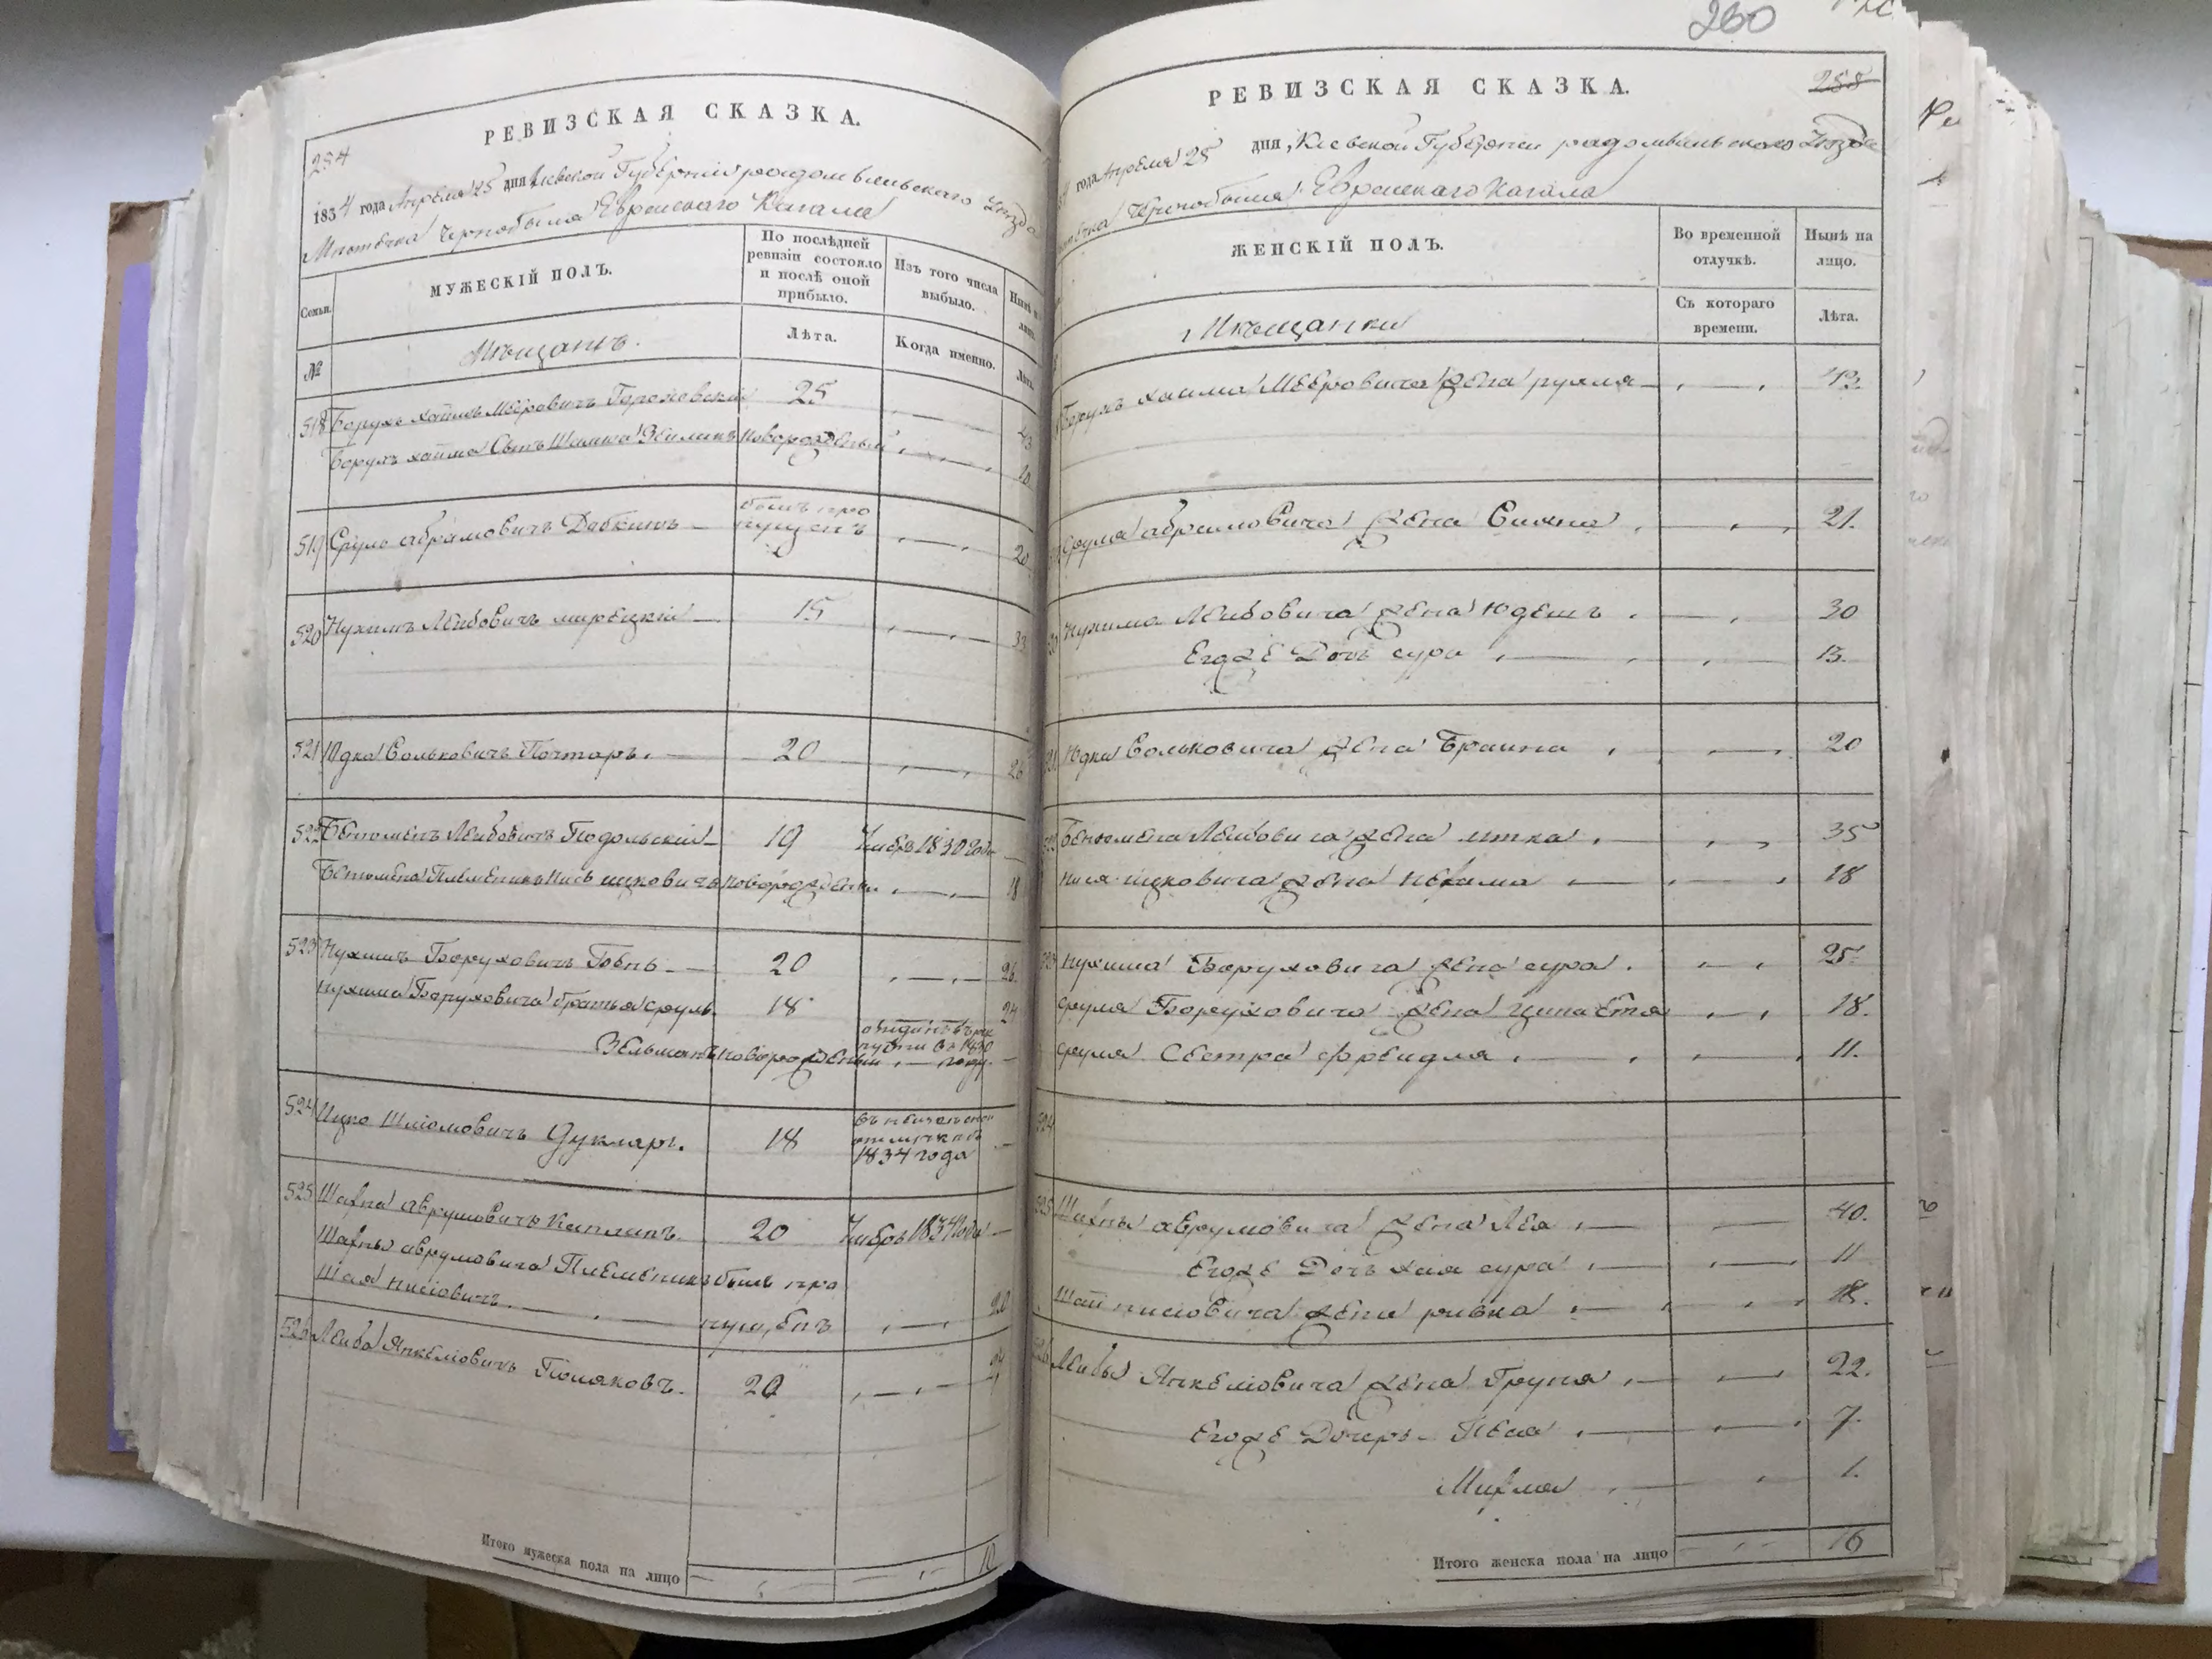 РЕВИЗСКАЯ СКАЗКА.
254
1834 года Апреля 25 дня Киевской Губернии радомысльского Уезда
Мѣстечка Чернобыля Еврейского Кагала
Семьи. МУЖЕСКІЙ ПОЛЪ. По послѣдней ревизіи состояло и послѣ оной прибыло. Изъ того числа выбыло. Нынѣ на лицо.
№ Мѣщанъ. Лѣта. Когда именно. Лѣта.
518 Борухъ хаимъ Мееровичъ 25 43
Борухъ хаима Сынъ Шлиома Зелманъ новорожденный 10
519 Сруль абрамовичъ былъ пропущенъ 20
520 Нухимъ Лейбовичъ мирецкій 15 33
521 Юдка Вольковичъ Почтаръ. 20 26
522 Бенюменъ Лейбовичъ Подольскій 19 Умеръ 1830 года
Бенюмена Племеникъ Нись ицковичъ новорожденни 18
523 Нухимъ Боруховичъ 20 26
нухима Боруховича братья сруль 18 24
Зельманъ новорожденный отданъ въ рекруты въ 1830 году
524 Ицко Шліомовичъ Цукмаръ. 18 отлучке съ 1834 года
525 Шахна аврумовичъ Капланъ. 20 Умеръ 1834 года
Шахны аврумовича Племеникъ былъ про
Шая нисіовичъ. пущенъ 20
526 Лейба Янкеліовичъ Поляковъ. 20
Итого мужеска пола на лицо 10
260
РЕВИЗСКАЯ СКАЗКА.
258
года Апреля 25 дня, Киевской Губернии радомысльского Уезда
Чернобыля Еврейского Кагала
ЖЕНСКІЙ ПОЛЪ. Во временной отлучкѣ. Нынѣ на лицо.
Мѣщанки Съ котораго времени. Лѣта.
Борухъ хаима Мееровича жена рухля 43.
Сруля абрамовича жена 21.
Нухима Лейбовича жена Юдешъ 30
Егоже Дочь сура 13.
Юдки Вольковича жена Браина 20
Бенюмена Лейбовича жена итка 35
нися ицковича жена нехама 18
нухима Боруховича жена сура. 25.
сруля Боруховича жена ципа Етя 18.
сруля Сестра Фреидля 11.
524
525 Шахны аврумовича жена Лея 40.
Егоже Дочь хая сура 11
Шаи нисіовича жена ривка 18.
Лейбы Янкеліовича жена Груня 22.
Егоже Дочерь Песя 7.
Михля 1.
Итого женска пола на лицо 16